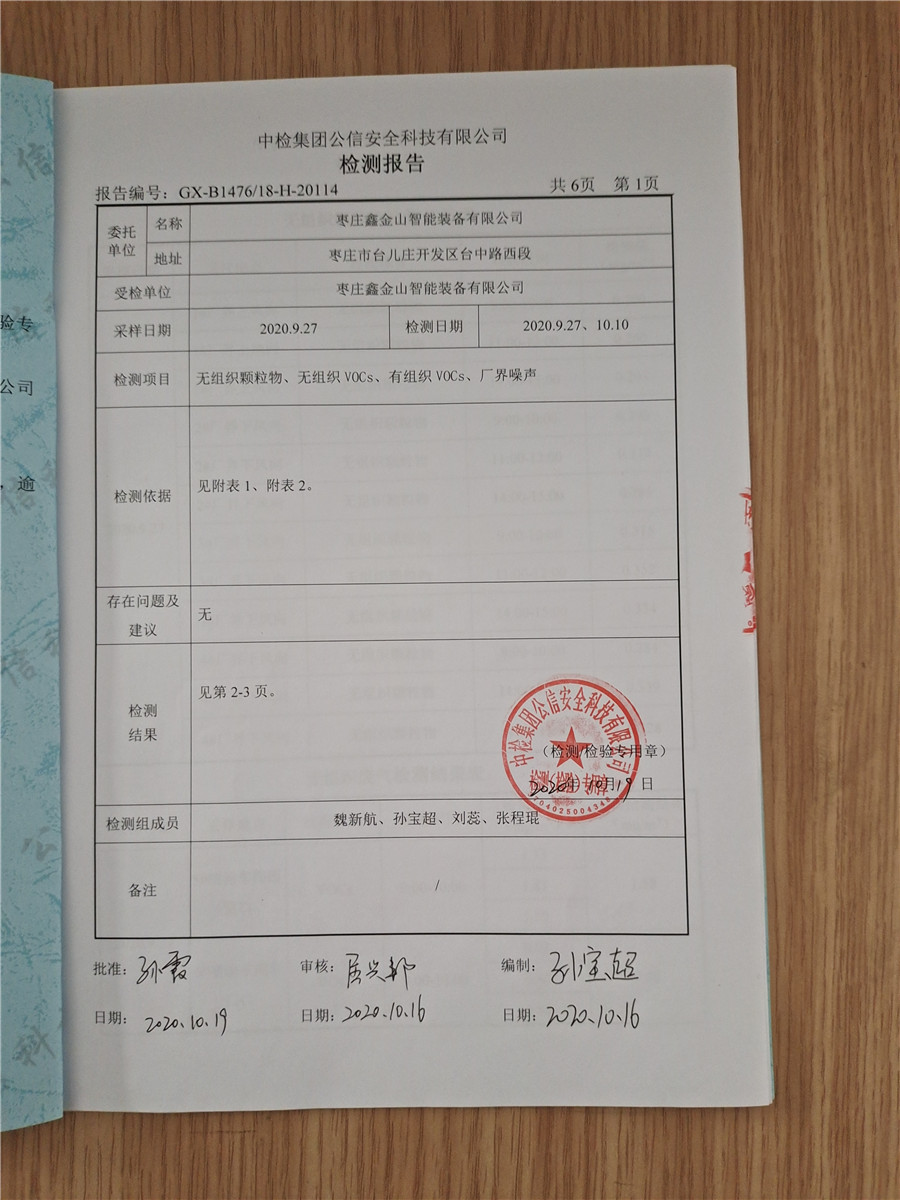 中检集团公信安全科技有限公司
检测报告
报告编号：GX-B1476/18-H-20114 共 6页 第 1页
委托单位 名称 枣庄鑫金山智能装备有限公司
地址 枣庄市台儿庄开发区台中路西段
受检单位 枣庄鑫金山智能装备有限公司
采样日期 2020.9.27 检测日期 2020.9.27、10.10
检测项目 无组织颗粒物、无组织 VOCs、有组织 VOCs、厂界噪声
检测依据 见附表 1、附表 2。
存在问题及
建议 无
检测
结果 见第 2-3 页。
中检集团公信安全科技有限公司
（检测/检验专用章）
2020年 10月 19 日
检测组成员 魏新航、孙宝超、刘蕊、张程琨
备注 /
批准：孙霞 审核：居兴邦 编制：孙宝超
日期：2020.10.19 日期：2020.10.16 日期：2020.10.16
验专
公司
，逾